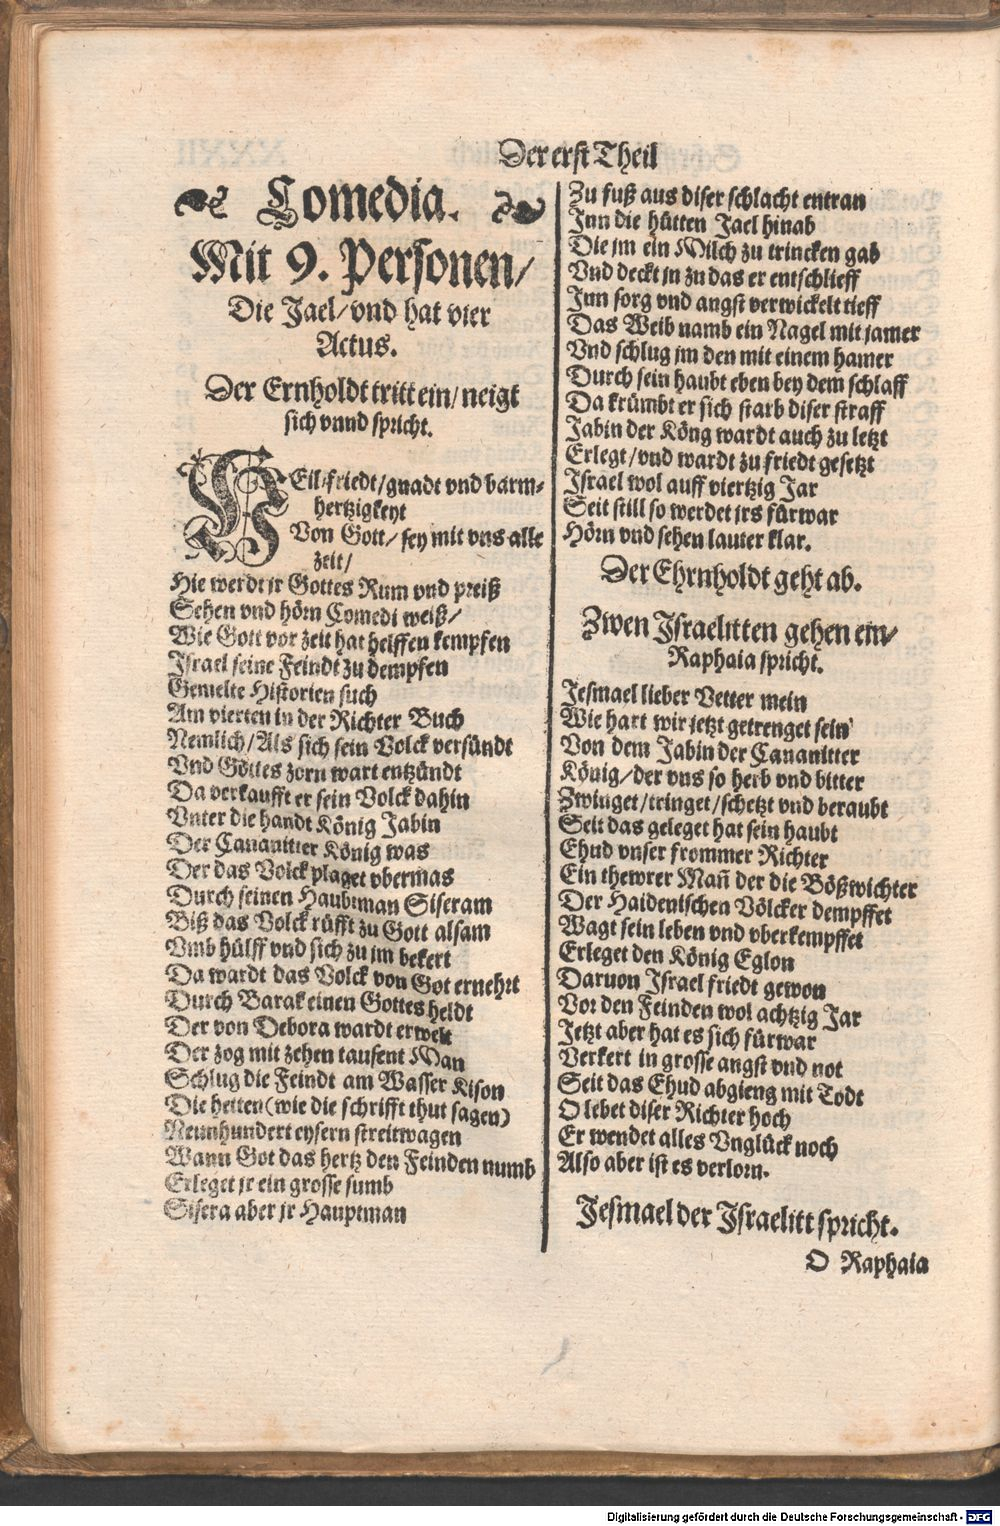 Der erst Theil
Comedia.
Mit 9. Personen/
Die Jael/vnd hat vier
Actus.
Der Ernholdt tritt ein/neigt
sich vnnd spricht.
HEil/friedt/gnadt vnd barm-
hertzigkeyt
Von Gott/sey mit vns alle
zeit/
Hie werdt jr Gottes Rum vnd preiß
Sehen vnd hörn Comedi weiß/
Wie Gott vor zeit hat helffen kempfen
Israel seine Feindt zu dempfen
Gemelte Historien such
Am vierten in der Richter Buch
Nemlich/Als sich sein Volck versündt
Vnd Gottes zorn wart entzündt
Da verkaufft er sein Volck dahin
Vnter die handt König Jabin
Der Cananitter König was
Der das Volck plaget vbermas
Durch seinen Haubtman Siseram
Biß das Volck rüfft zu Gott alsam
Vmb hülff vnd sich zu jm bekert
Da wardt das Volck von Got ernehrt
Durch Barak einen Gottes heldt
Der von Debora wardt erwelt
Der zog mit zehen tausent Man
Schlug die Feindt am Wasser Kison
Die hetten(wie die schrifft thut sagen)
Neunhundert eysern streitwagen
Wann Got das hertz den Feinden numb
Erleget jr ein grosse sumb
Sisera aber jr Hauptman
Zu fuß aus diser schlacht entran
Inn die hütten Jael hinab
Die jm ein Milch zu trincken gab
Vnd deckt jn zu das er entschlieff
Inn sorg vnd angst verwickelt tieff
Das Weib namb ein Nagel mit jamer
Vnd schlug jm den mit einem hamer
Durch sein haubt eben bey dem schlaff
Da krümbt er sich starb diser straff
Jabin der Köng wardt auch zu letzt
Erlegt/vnd wardt zu friedt gesetzt
Israel wol auff viertzig Jar
Seit still so werdet jrs fürwar
Hörn vnd sehen lauter klar.
Der Ehrnholdt geht ab.
Zwen Israelitten gehen ein/
Raphaia spricht.
Jesmael lieber Vetter mein
Wie hart wir jetzt getrenget sein
Von dem Jabin der Cananitter
König/der vns so herb vnd bitter
Zwinget/tringet/schetzt vnd beraubt
Seit das geleget hat sein haubt
Ehud vnser frommer Richter
Ein thewrer Mañ der die Bößwichter
Der Haidenischen Völcker dempffet
Wagt sein leben vnd vberkempffet
Erleget den König Eglon
Daruon Israel friedt gewon
Vor den Feinden wol achtzig Jar
Jetzt aber hat es sich fürwar
Verkert in grosse angst vnd not
Seit das Ehud abgieng mit Todt
O lebet diser Richter hoch
Er wendet alles Vnglück noch
Also aber ist es verlorn.
Jesmael der Israelitt spricht.
O Raphaia
Digitalisierung gefördert durch die Deutsche Forschungsgemeinschaft - DFG